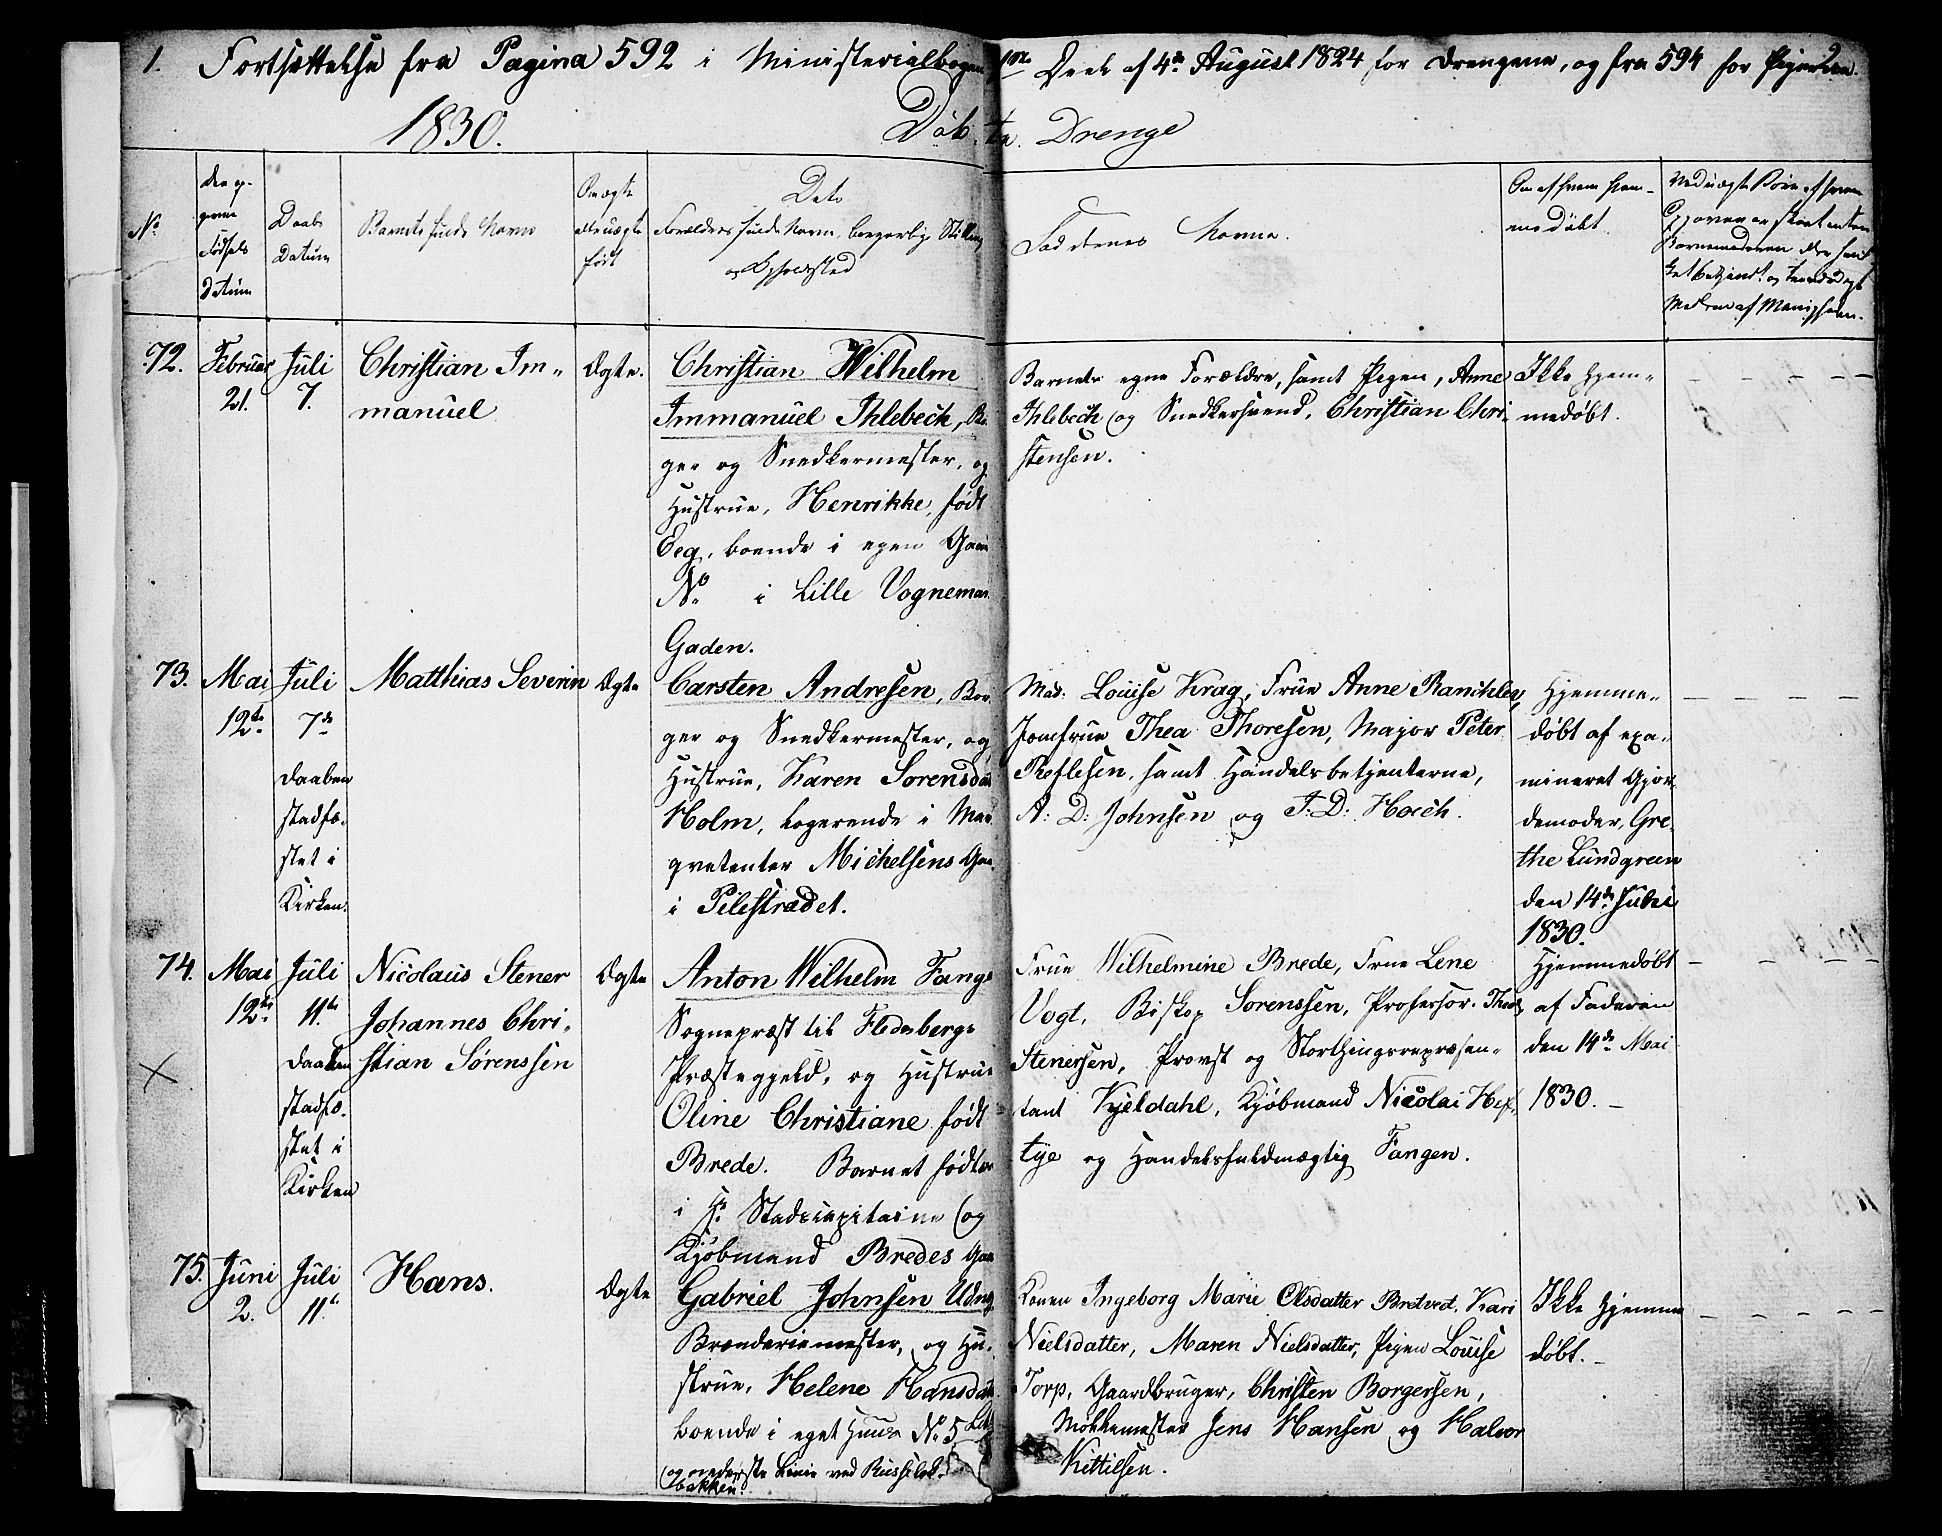 1. Fortsættelse fra Pagina 592 i Ministerialbogens 1ste Deel af 4de August 1824 for Drengene, og fra 594 for Pigerne. 2.
1830. Døbte Drenge
No
Den op-
givne
Fødsels
Datum
Daabs
Datum
Barnets fulde Navn
Om ægte
eller uægte
født
Dets
Forældres fulde Navn, borgerlig Stilling
og Opholdsted
Faddernes Navne.
Om af hvem hjem-
medøbt.
72.
Februar
21.
Juli
7.
Christian Im-
manuel
Ægte.
Christian Wilhelm
Immanuel Ihlebech, Bor
ger og Snedkermester, og
Hustrue, Henrikke, født
Eeg, boende i egen Gaard
No i Lille Vognemands
Gaden.
Barnets egne Forældre, samt Pigen, Anne
Ihlebech og Snedkersvend, Christian Chri-
stensen.
Ikke hjem-
medøbt.
73.
Mai
12te
Juli
7de
Daaben
stadfæ-
stet i
Kirken.
Matthias Severin
Ægte
Carsten Andresen, Bor
ger og Snedkermester, og
Hustrue, Karen Sørensdat
Holm, logerende i Mar
qvetenter Michelsens Gaa
i Pilestrædet.
Mad. Louise Krag, Frue Anne
Jomfrue Thea Thoresen, Major Peter
samt Handelsbetjenterne,
A: D: Johnsen og J: D: Hoech.
Hjemme-
døbt af exa-
mineret Gjor
demoder, Gre-
the Lundgreen
den 14de
1830.
74.
Mai
12te
Juli
11te
Daaben
stadfæ-
stet i
Kirken
Nicolaus Stener
Johannes Chri-
stian Sørenssen
Ægte
Anton Wilhelm Fange
Sognepræst til Flesberg
Præstegjeld, og Hustrue
Oline Christiane født
Brede. Barnet født
i Hr. Stadscapitaine og
Kjøbmand Bredes Gaa
Frue Wilhelmine Brede, Frue Lene
Vogt, Biskop Sørenssen, Professor
Stenersen, Provst og Storthingsrepræsen-
tant Kjeldahl, Kjøbmand Nicolai Hef-
tye og Handelsfuldmægtig Fangen.
Hjemmedøbt
af Faderen
den 14de Mai
1830. –
75.
Juni
2.
Juli
11te
Hans.
Ægte
Gabriel Johnsen Udng
Brænderiemester, og Hu-
strue, Helene Hansdat
boende i eget Huus No 5
og nederste Linie ved
bakken.
Konen Ingeborg Marie Olsdatter Bredved, Kari
Nielsdatter, Maren Nielsdatter, Pigen Louise
Torp, Gaardbruger, Christen Borgersen,
Møllemester Jens Hansen og Halvor
Kittilsen.
Ikke hjemme
døbt. –